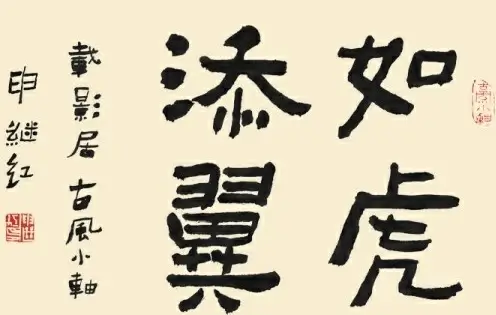 如虎
添翼
載影居 古風小軸
申继红